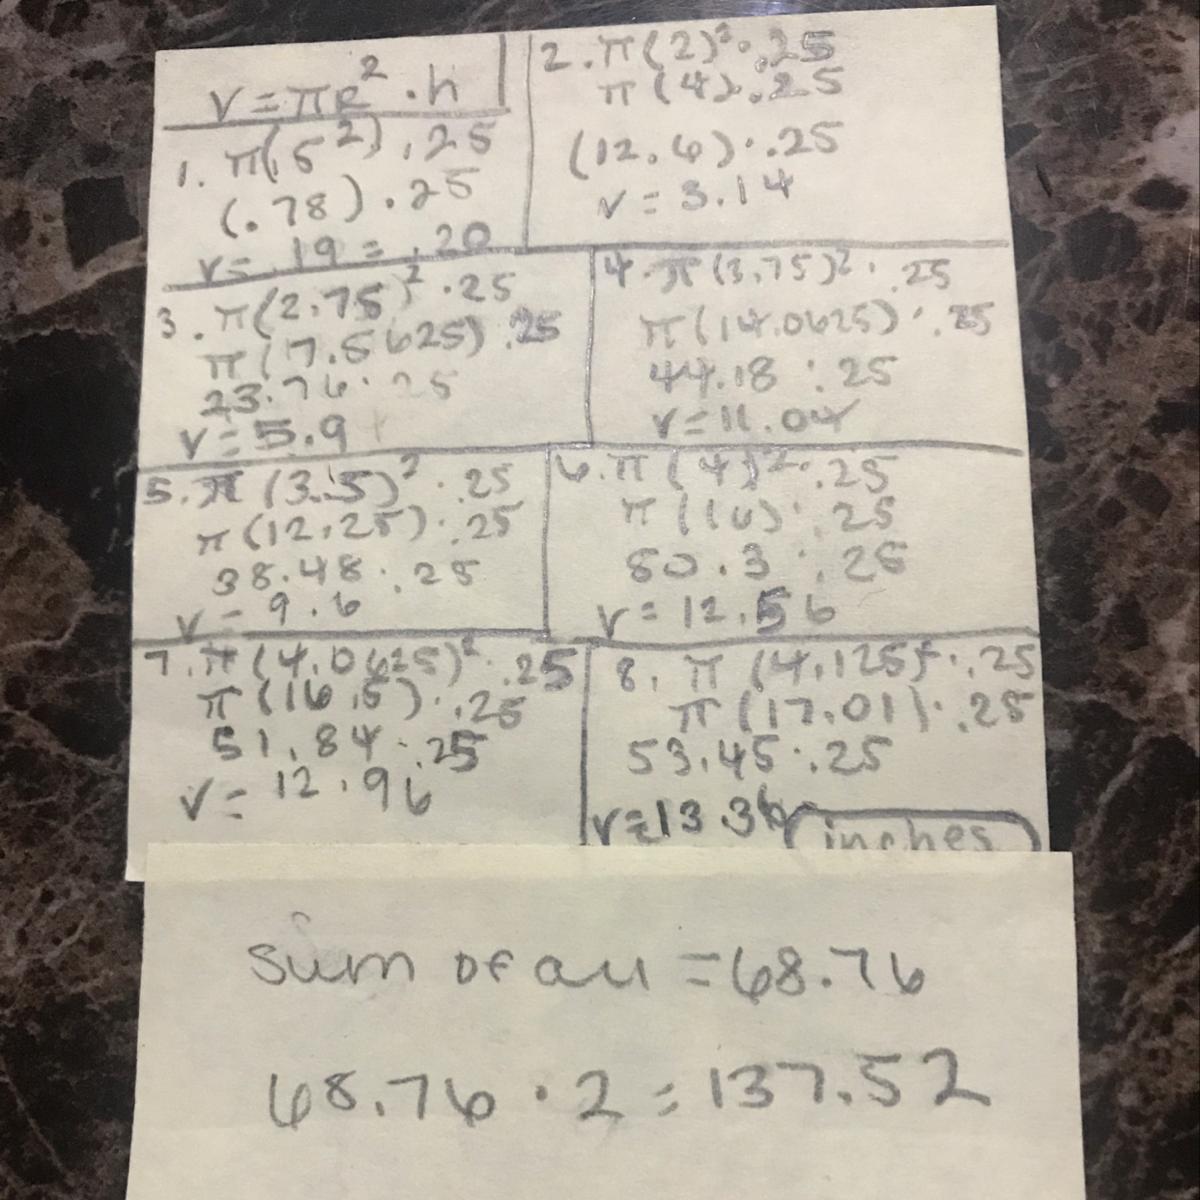 V = πR² · h
1. π(.5²) .25
(.78) . 25
V= .19 = .20
2. π(2)² · .25
π (4) . .25
(12.6) · .25
V = 3.14
3. π(2.75)² · 25
π (7.5625) .25
23.76 · 25
V = 5.9
4. π (3.75)² · .25
π (14.0625) · .25
44.18 · .25
V = 11.04
5. π (3.5)² · .25
π (12.25) · .25
38.48 · .25
V = 9.6
6. π (4)² · .25
π (16) · .25
50.3 · .25
V = 12.56
7. π (4.0625)² · .25
π (16.5) · .25
51.84 · .25
V = 12.96
8. π (4.125)² · .25
π (17.01) · .25
53.45 · .25
V = 13.36
inches
Sum of all = 68.76
68.76 · 2 = 137.52